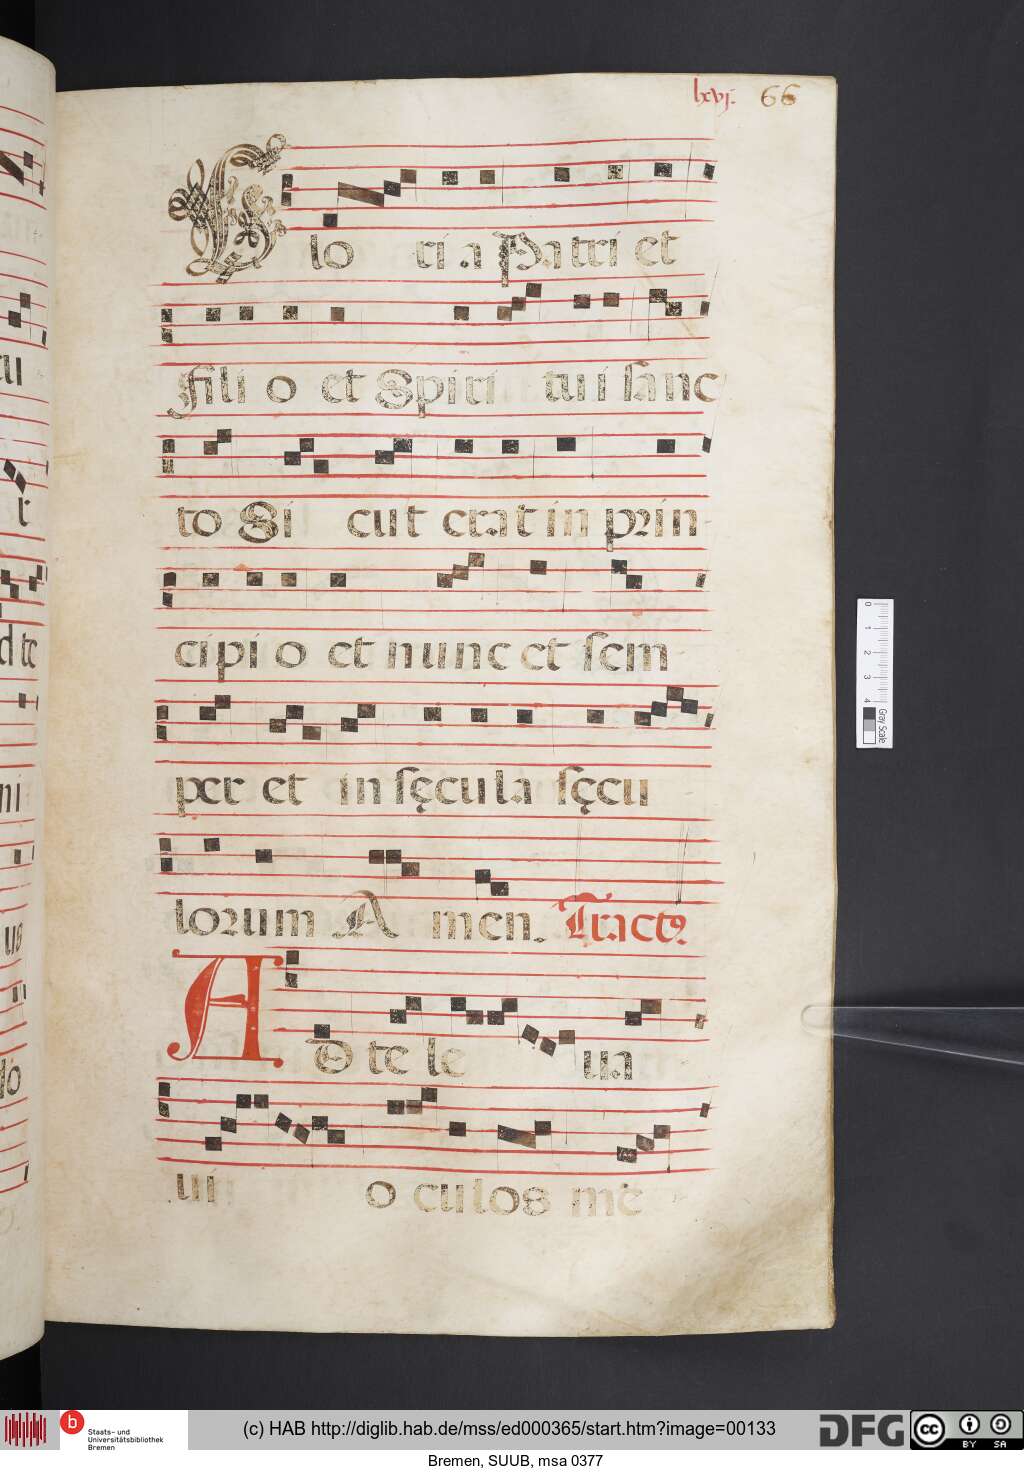 lxvj. 66
Glo ri a Patri et
Fili o et Spiri tui sanc
to Si cut erat in prin
cipi o et nunc et sem
per et in sęcula sęcu
lorum A men. Tractꝰ
AD te le ua
ui o culos me
0 1 2 3 4 Gray Scale
cu
t
d te
ni
us
ló
b Staats- und
Universitätsbibliothek
Bremen
(c) HAB http://diglib.hab.de/mss/ed000365/start.htm?image=00133
DFG
cc BY SA
Bremen, SUUB, msa 0377